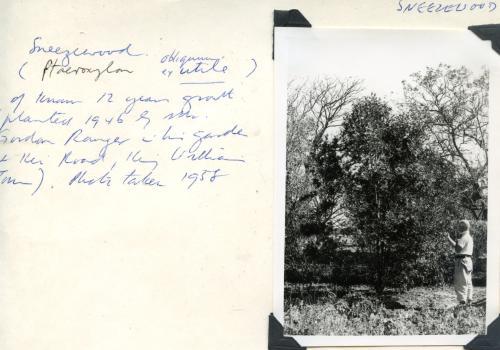 SNEEZEWOOD
Sneezewood.
(Ptaeroxylon obliquum
ex utile)
of known 12 years growth.
planted 1946 by Mr.
Gordon Ranger in his garden
Kei Road, King William
Town). Photo taken 1958